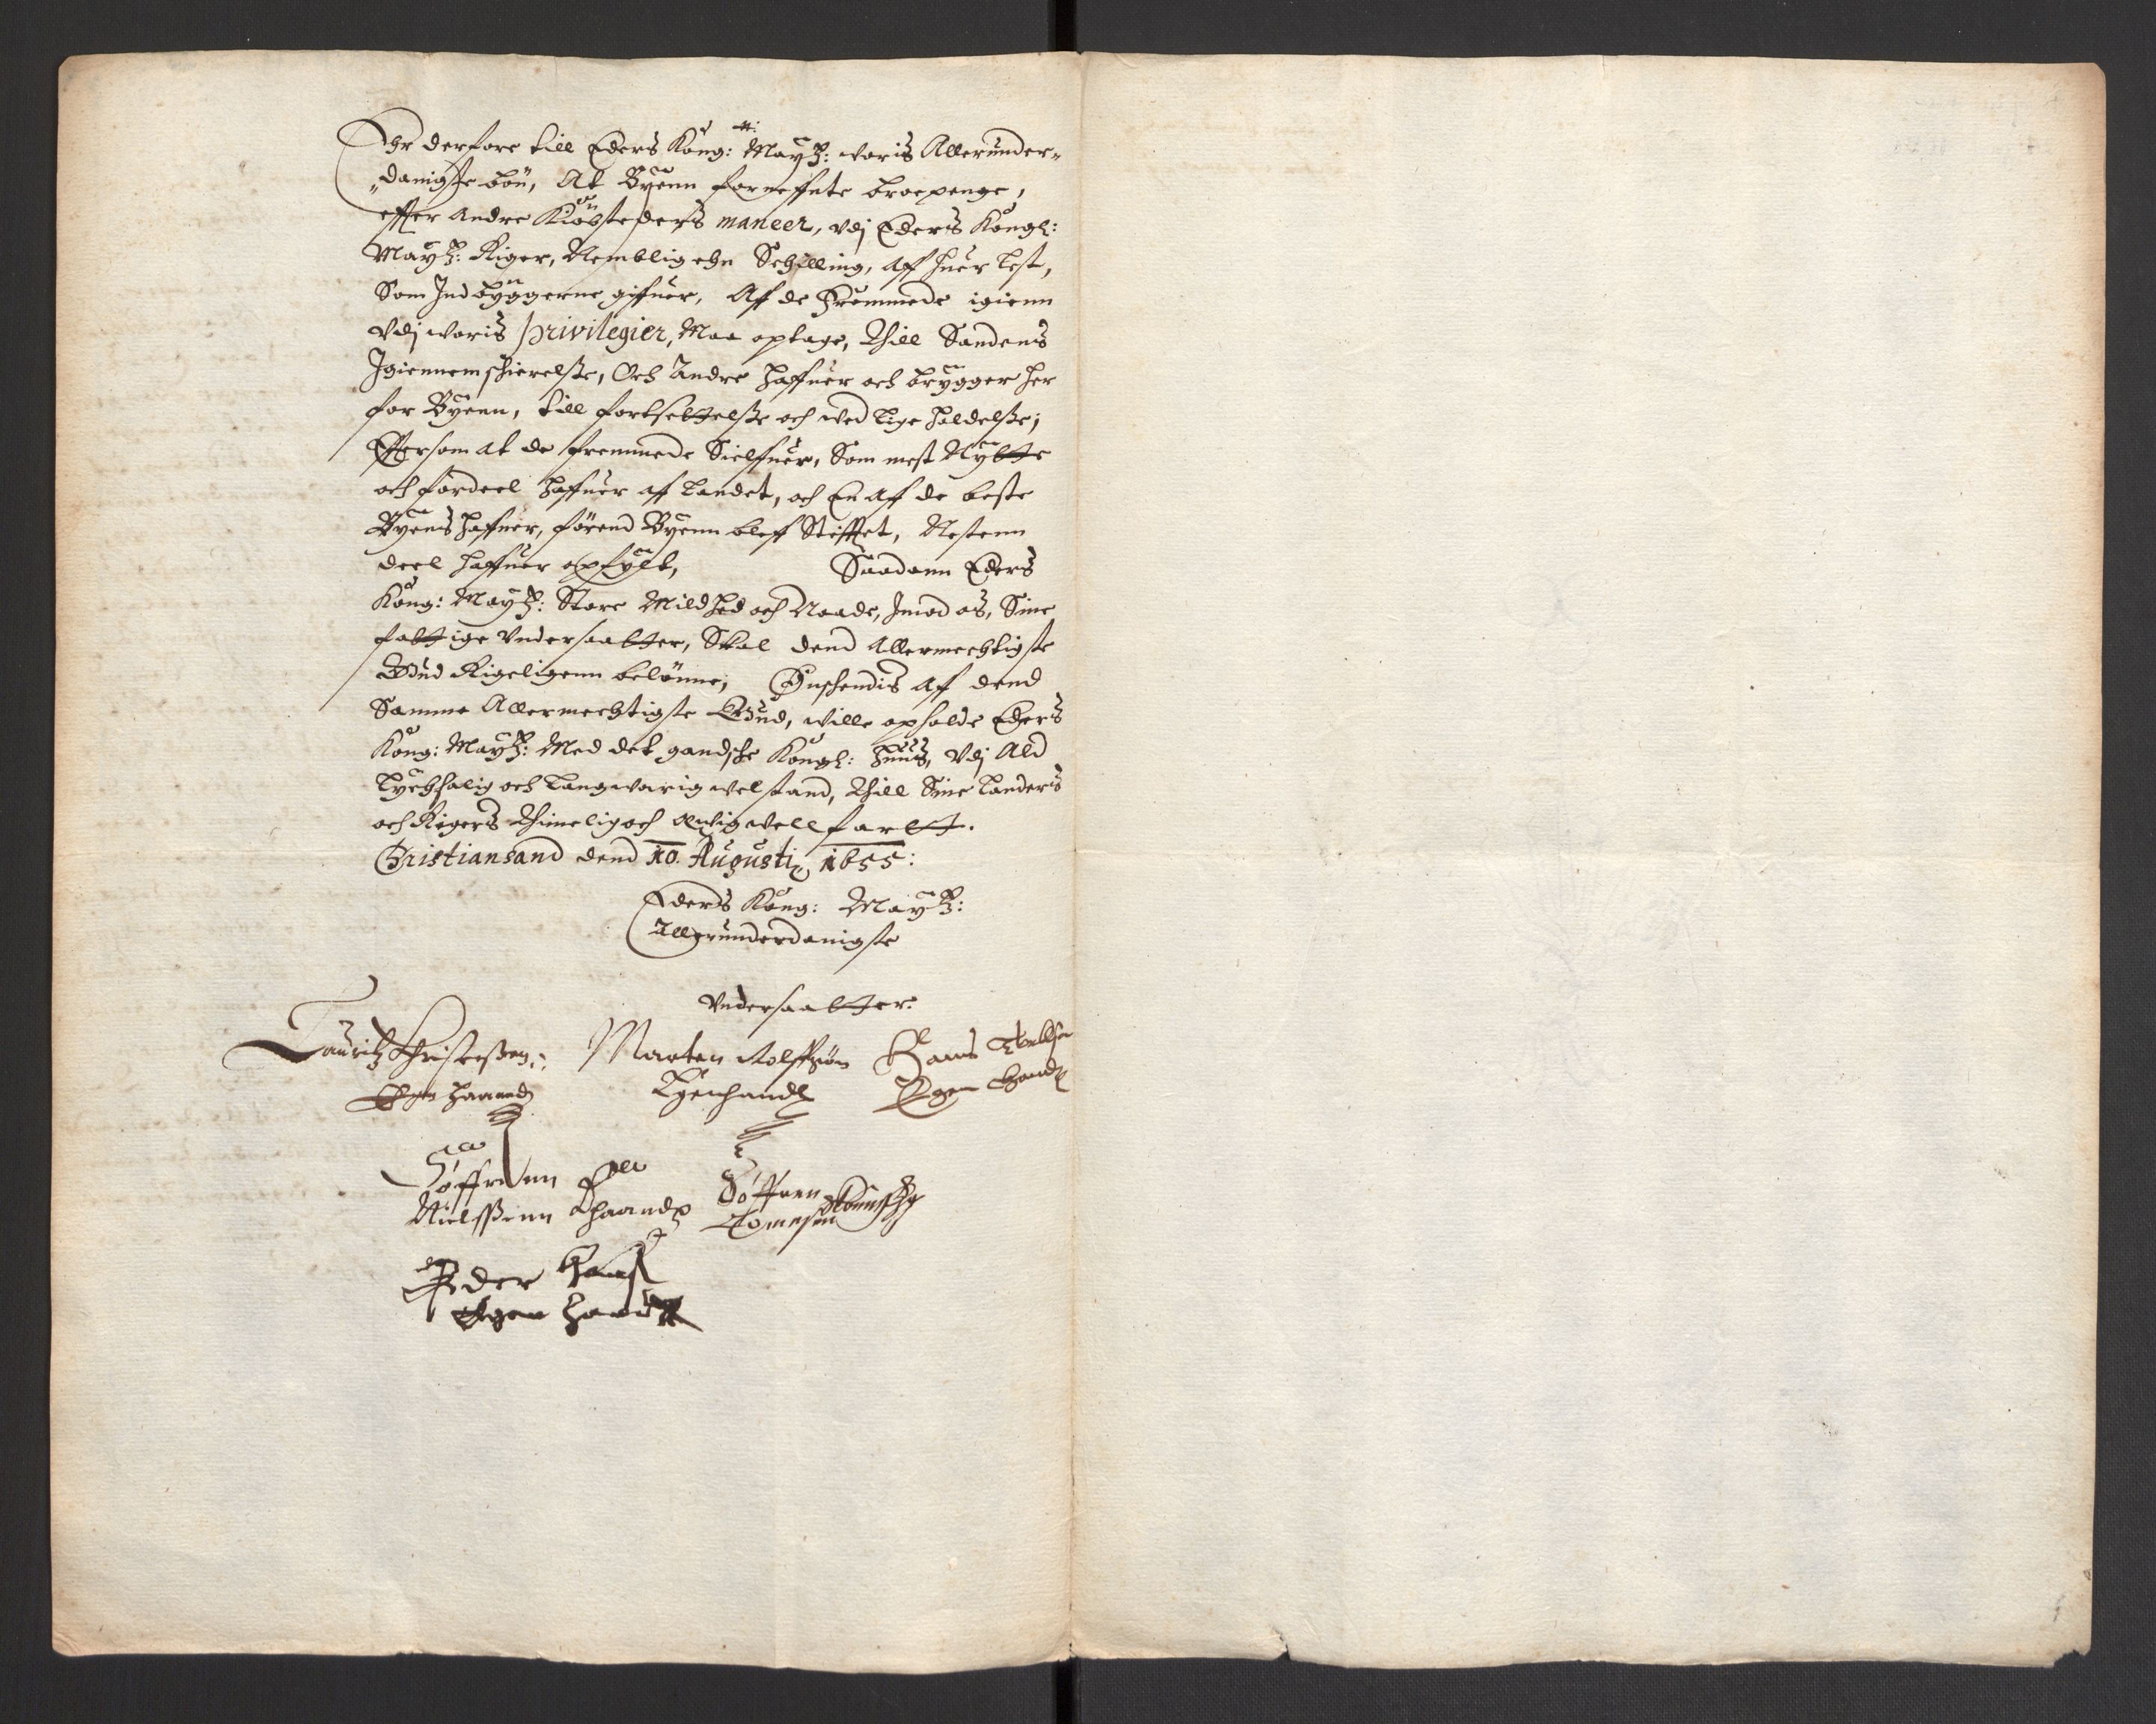 Ehr derfore till Eders Kong: Maytz: woris Allerunder-
danigste bön, At Byenn forneffnte broepenge,
effter andre Kiöbsteders maneer, vdj Eders Kongl:
Maytz: Riger, Nemblig ehn Schilling, aff huer Lest,
Som Indbyggerne giffuer, Aff de Fremmede igienn
vdj woris privilegier, Maa optage, Thill Sandens
Igiennemschierelsse, Och Andre Haffner och brygger her
for Byenn, till fortsettelsse och wed lige holdelsse,
Effersom at de fremmede Sielffuer, Som mest Nytte
och fordeel haffuer aff Landet, och En aff de beste
Byens haffner, förend Byenn bleff Stifftet, Nestenn
deel haffuer opfylt, Saadann Eders
Kong: Maytz: Store Mildhed och Naade, Imod os, Sine
fattige vndersaatter, Skal dend Allermechtigste
Gud Rigeligenn belönne, Önschendis aff dend
Samme Allermechtigste Gud, wille opholde Eders
Kong: Maytz: Med det gandsche Kongl: Huus, Vdj Ald
Lychsalig och Langwarig welstand, Thill Sine Landers
och Rigers Thimelig och Ewig wellfartt.
Christiansand dend 10. Augustij 1655:
Eders Kong: Maytz:
Allerunderdanigste
vndersaatter.
Lauritz Christensen Marten Rolffsön Hans
Egen Haannd Egenhandt Egen Handt
Söffrenn
Nielssenn Ehaand Söffren
Tomesen
Peder Hans
Egen Haand